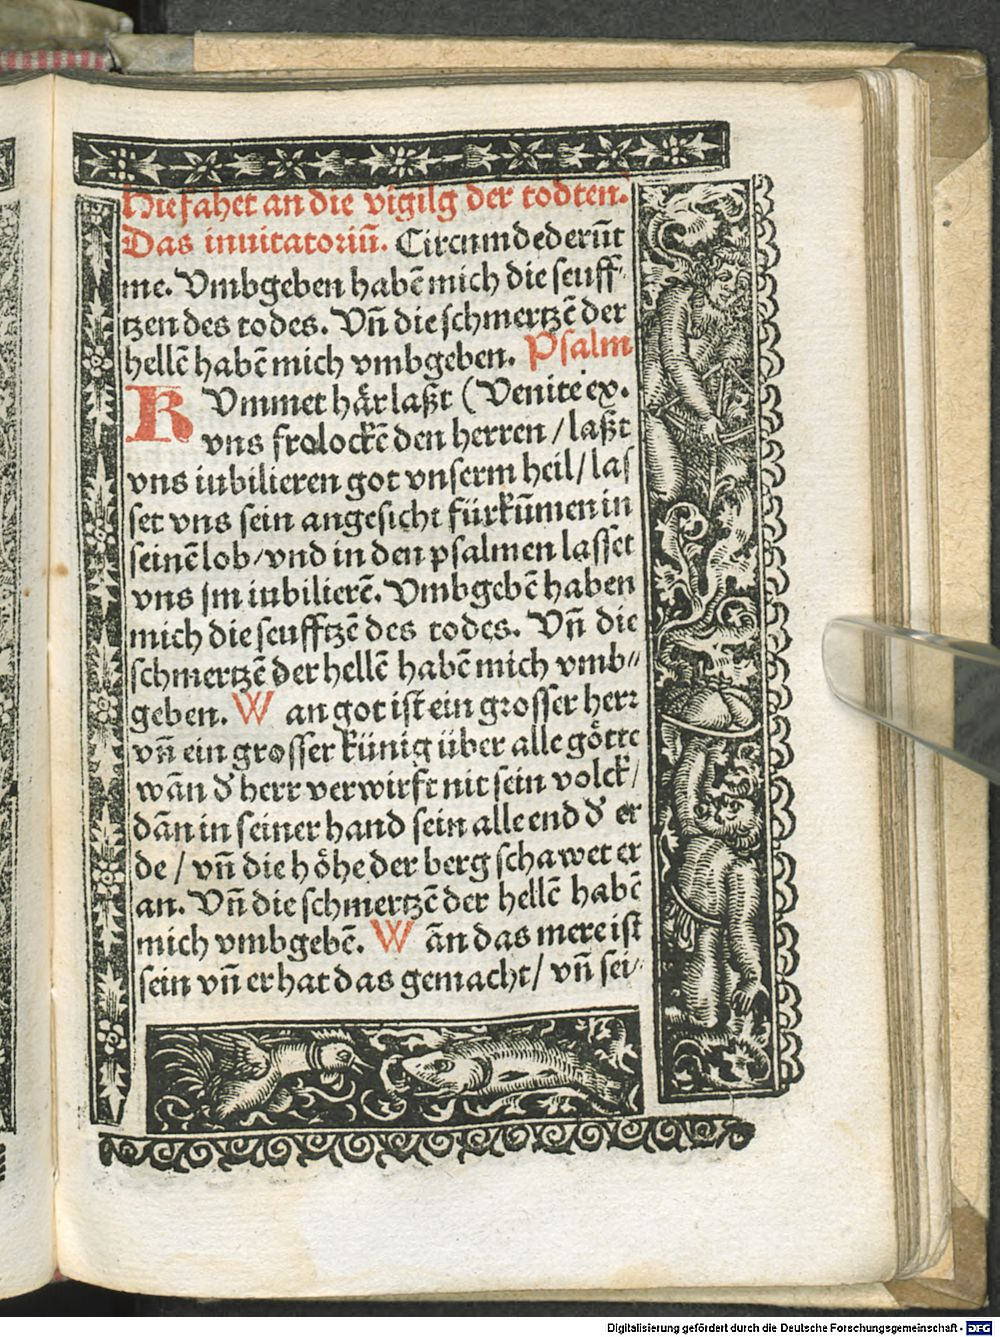 Hie fahet an die vigilg der todten.
Das inuitatoriū. Circumdederūt
me. Vmbgeben habē mich die seuff⸗
tzen des todes. Vñ die schmertzē der
hellē habē mich vmbgeben. Psalm
KVmmet hår laßt (Venite ex.
vns frolockē den herren / laßt
vns iubilieren got vnserm heil / las
set vns sein angesicht fürkūmen in
seinē lob / vnd in den psalmen lasset
vns jm iubilierē. Vmbgebē haben
mich die seufftzē des todes. Vñ die
schmertzē der hellē habē mich vmb⸗
geben. Wan got ist ein grosser herr
vñ ein grosser künig über alle götte
wān d' herr verwirft nit sein volck /
dān in seiner hand sein alle end d' er
de / vñ die höhe der berg schawet er
an. Vñ die schmertzē der hellē habē
mich vmbgebē. Wān das mere ist
sein vñ er hat das gemacht / vñ sei⸗
Digitalisierung gefördert durch die Deutsche Forschungsgemeinschaft - DFG